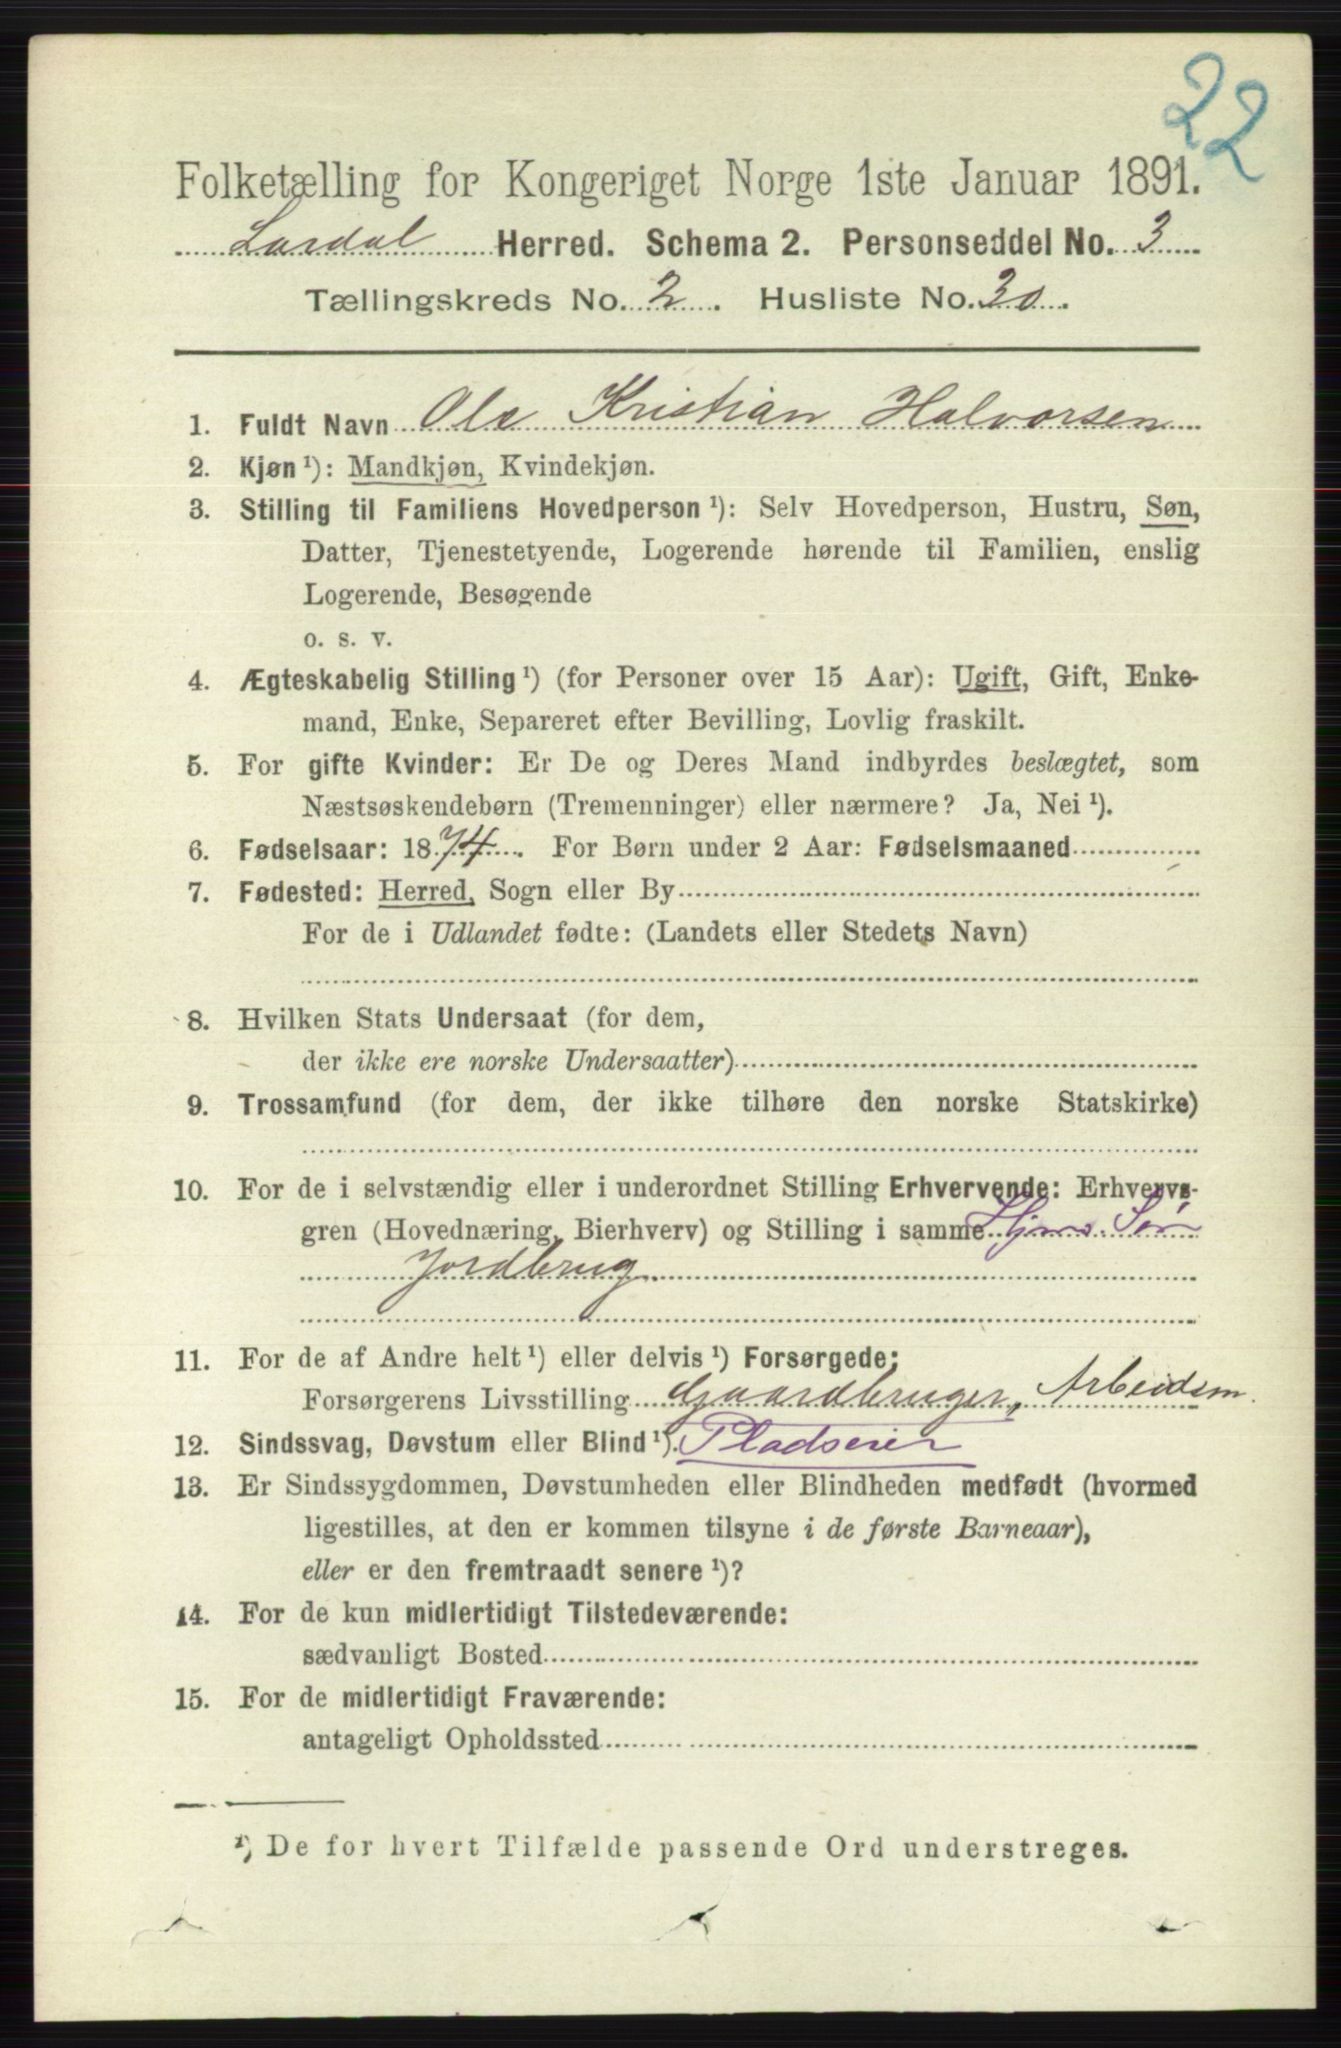 22
Folketælling for Kongeriget Norge 1ste Januar 1891.
Lardal Herred. Schema 2. Personseddel No. 3
Tællingskreds No. 2. Husliste No. 30.
1. Fuldt Navn Ole Kristian Halvorsen
2. Kjøn ¹): Mandkjøn, Kvindekjøn.
3. Stilling til Familiens Hovedperson ¹): Selv Hovedperson, Hustru, Søn,
Datter, Tjenestetyende, Logerende hørende til Familien, enslig
Logerende, Besøgende
o. s. v.
4. Ægteskabelig Stilling ¹) (for Personer over 15 Aar): Ugift, Gift, Enke-
mand, Enke, Separeret efter Bevilling, Lovlig fraskilt.
5. For gifte Kvinder: Er De og Deres Mand indbyrdes beslægtet, som
Næstsøskendebørn (Tremenninger) eller nærmere? Ja, Nei ¹).
6. Fødselsaar: 1874. For Børn under 2 Aar: Fødselsmaaned
7. Fødested: Herred, Sogn eller By
For de i Udlandet fødte: (Landets eller Stedets Navn)
8. Hvilken Stats Undersaat (for dem,
der ikke ere norske Undersaatter)
9. Trossamfund (for dem, der ikke tilhøre den norske Statskirke)
10. For de i selvstændig eller i underordnet Stilling Erhvervende: Erhvervs-
gren (Hovednæring, Bierhverv) og Stilling i samme Hjmv. Søn
Jordbrug
11. For de af Andre helt ¹) eller delvis ¹) Forsørgede:
Forsørgerens Livsstilling Gaardbruger, Arbeidsm.
12. Sindssvag, Døvstum eller Blind ¹). Pladseier
13. Er Sindssygdommen, Døvstumheden eller Blindheden medfødt (hvormed
ligestilles, at den er kommen tilsyne i de første Barneaar),
eller er den fremtraadt senere ¹)?
14. For de kun midlertidigt Tilstedeværende:
sædvanligt Bosted
15. For de midlertidigt Fraværende:
antageligt Opholdssted
¹) De for hvert Tilfælde passende Ord understreges.